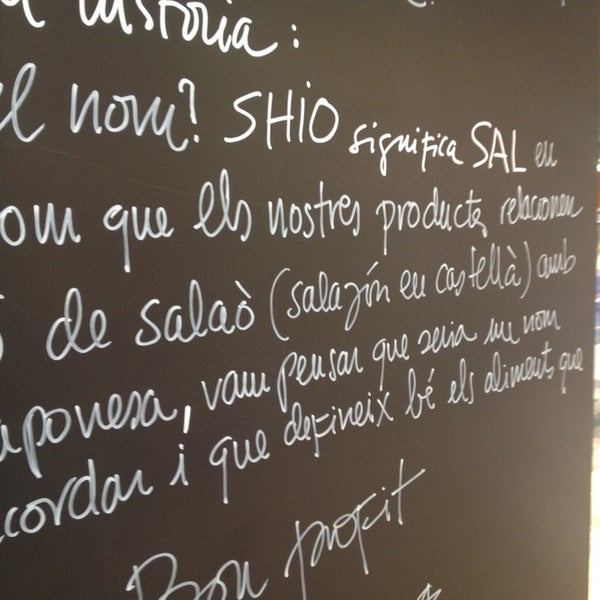 història:
el nom? SHIO significa SAL en
com que els nostres productes relacionen
de salaò (salazón en castellà) amb
japonesa, vam pensar que seria un nom
recordar i que defineix bé els aliments que
Bon profit